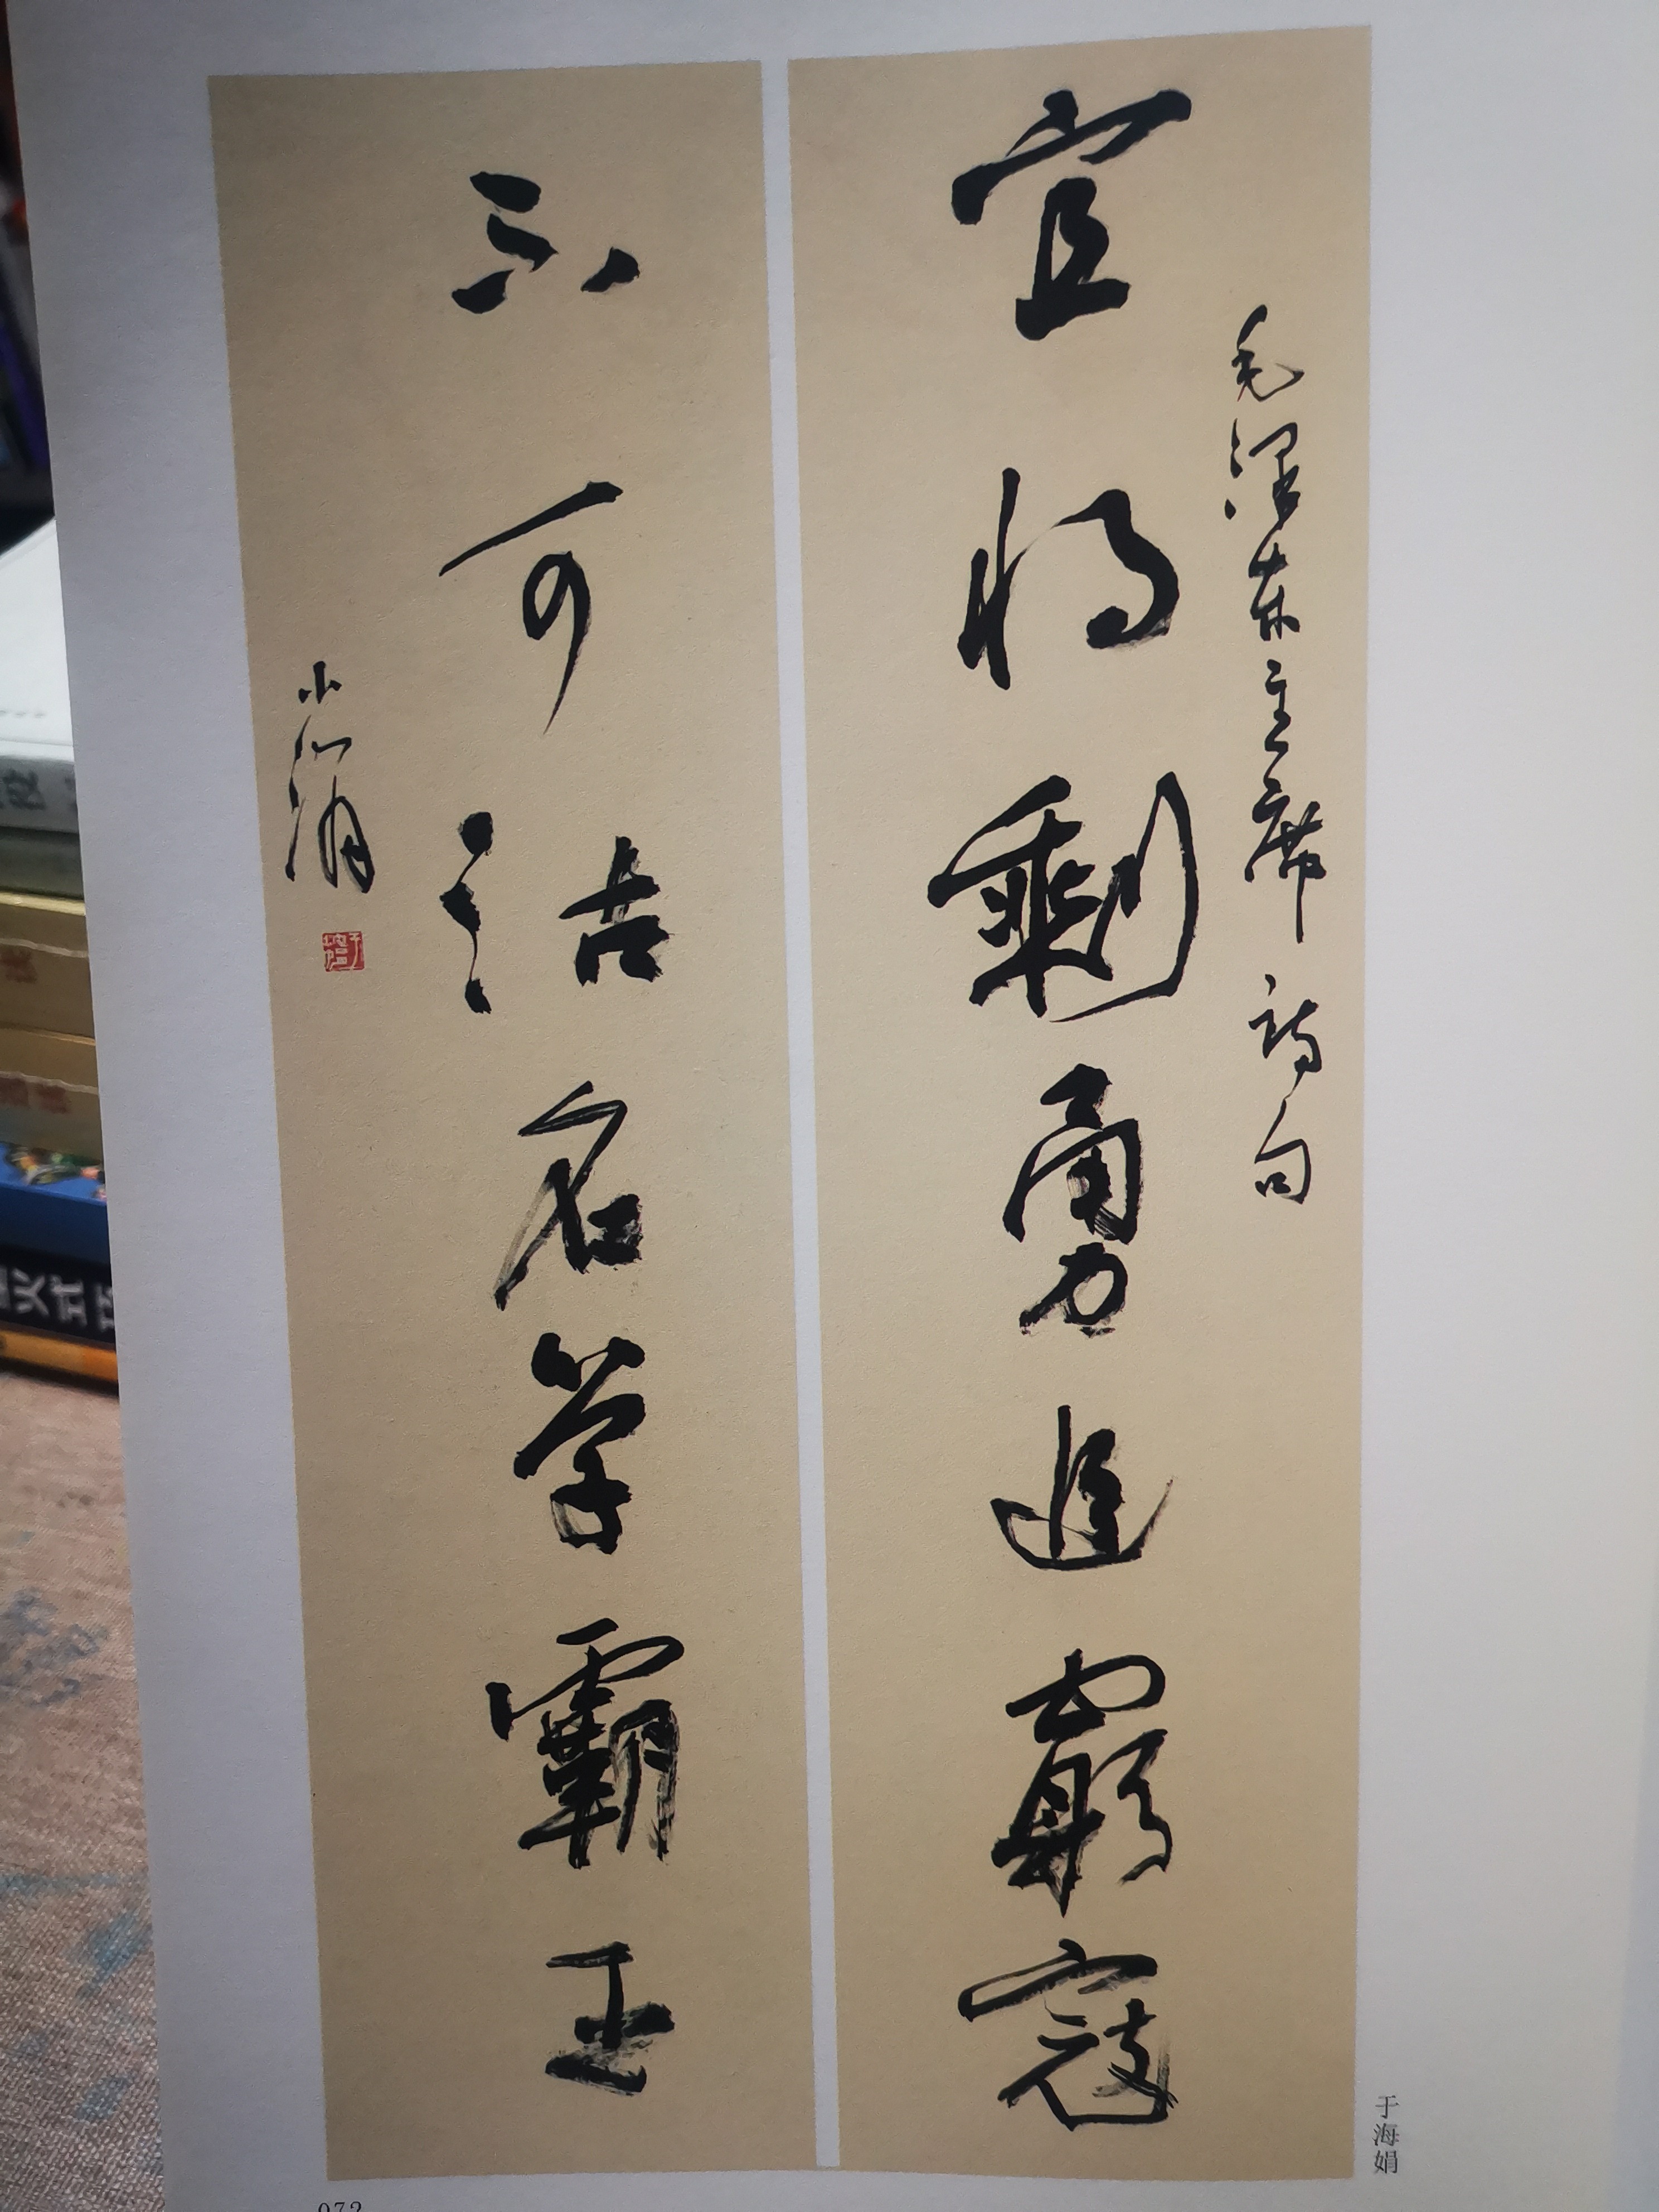 毛泽东主席诗句
宜将剩勇追窮寇
不可沽名学霸王
于海娟